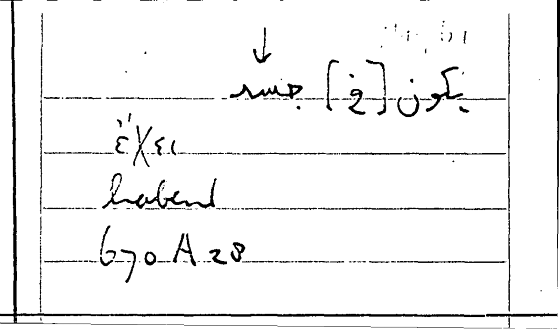 يكون [في]
ἔχει
habent
670 A 28